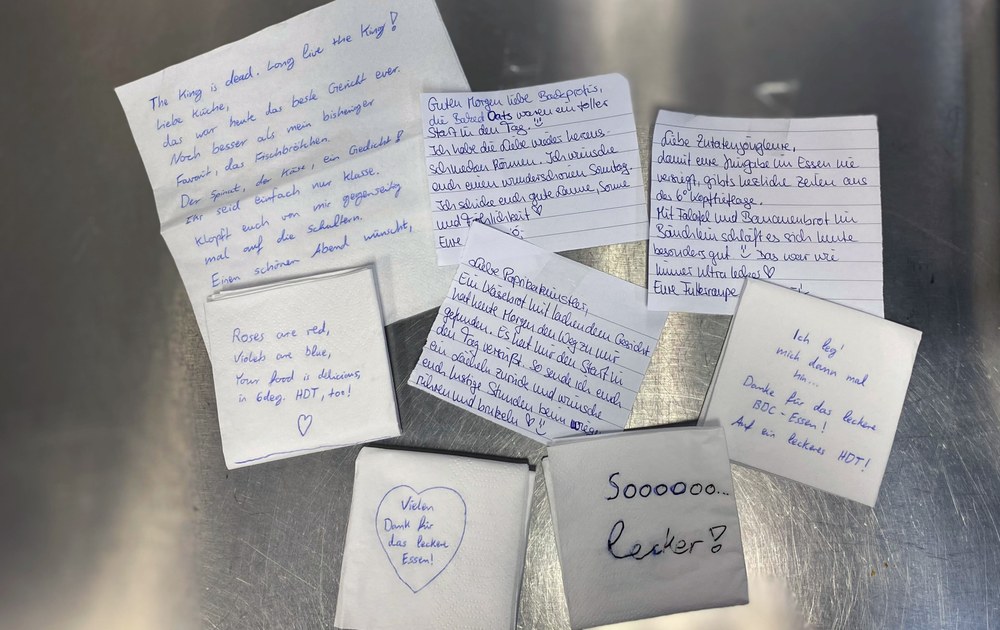 The King is dead. Long live the King!
Liebe Küche,
das war heute das beste Gericht ever.
Noch besser als mein bisheriger
Favorit, das Fischbrötchen.
Der Spinat, der Käse, ein Gedicht!
Ihr seid einfach nur klasse.
Klopft euch von mir gegenseitig
mal auf die Schultern.
Einen schönen Abend wünscht,
Guten Morgen liebe Backprofis,
die Baked Oats waren ein toller
Start in den Tag.
Ich habe die Liebe wieder heraus-
schmecken können. Ich wünsche
euch einen wunderschönen Sonntag.
Ich schicke euch gute Laune, Sonne
und Fröhlichkeit ♡
Eure
Liebe Zutatenjongleure,
damit eure Hingabe im Essen nie
versiegt, gibts herzliche Zeilen aus
der 6° Kopftieflage.
Mit Falafel und Bananenbrot im
Bäuchlein schläft es sich heute
besonders gut Das war wie
immer ultra lecker ♡
Eure Futterraupe
Liebe Paprikakünstler,
Ein Käsebrot mit lachendem Gesicht
hat heute Morgen den Weg zu mir
gefunden. Es hat mir den Start in
den Tag versüßt. So sende ich euch
ein Lächeln zurück und wünsche
euch lustige Stunden beim
rühren und brutzeln ♡
Roses are red,
Violets are blue,
Your food is delicious,
in 6deg. HDT, too!
♡
Ich leg'
mich dann mal
hin...
Danke für das leckere
BDC-Essen!
Auf ein leckeres HDT!
Vielen
Dank für
das leckere
Essen!
Soooooo...
lecker!